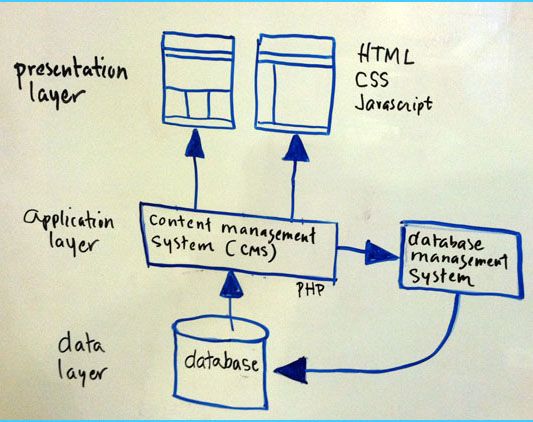 presentation
layer
HTML
CSS
Javascript
application
layer
content management
system (CMS)
PHP
database
management
system
data
layer
database